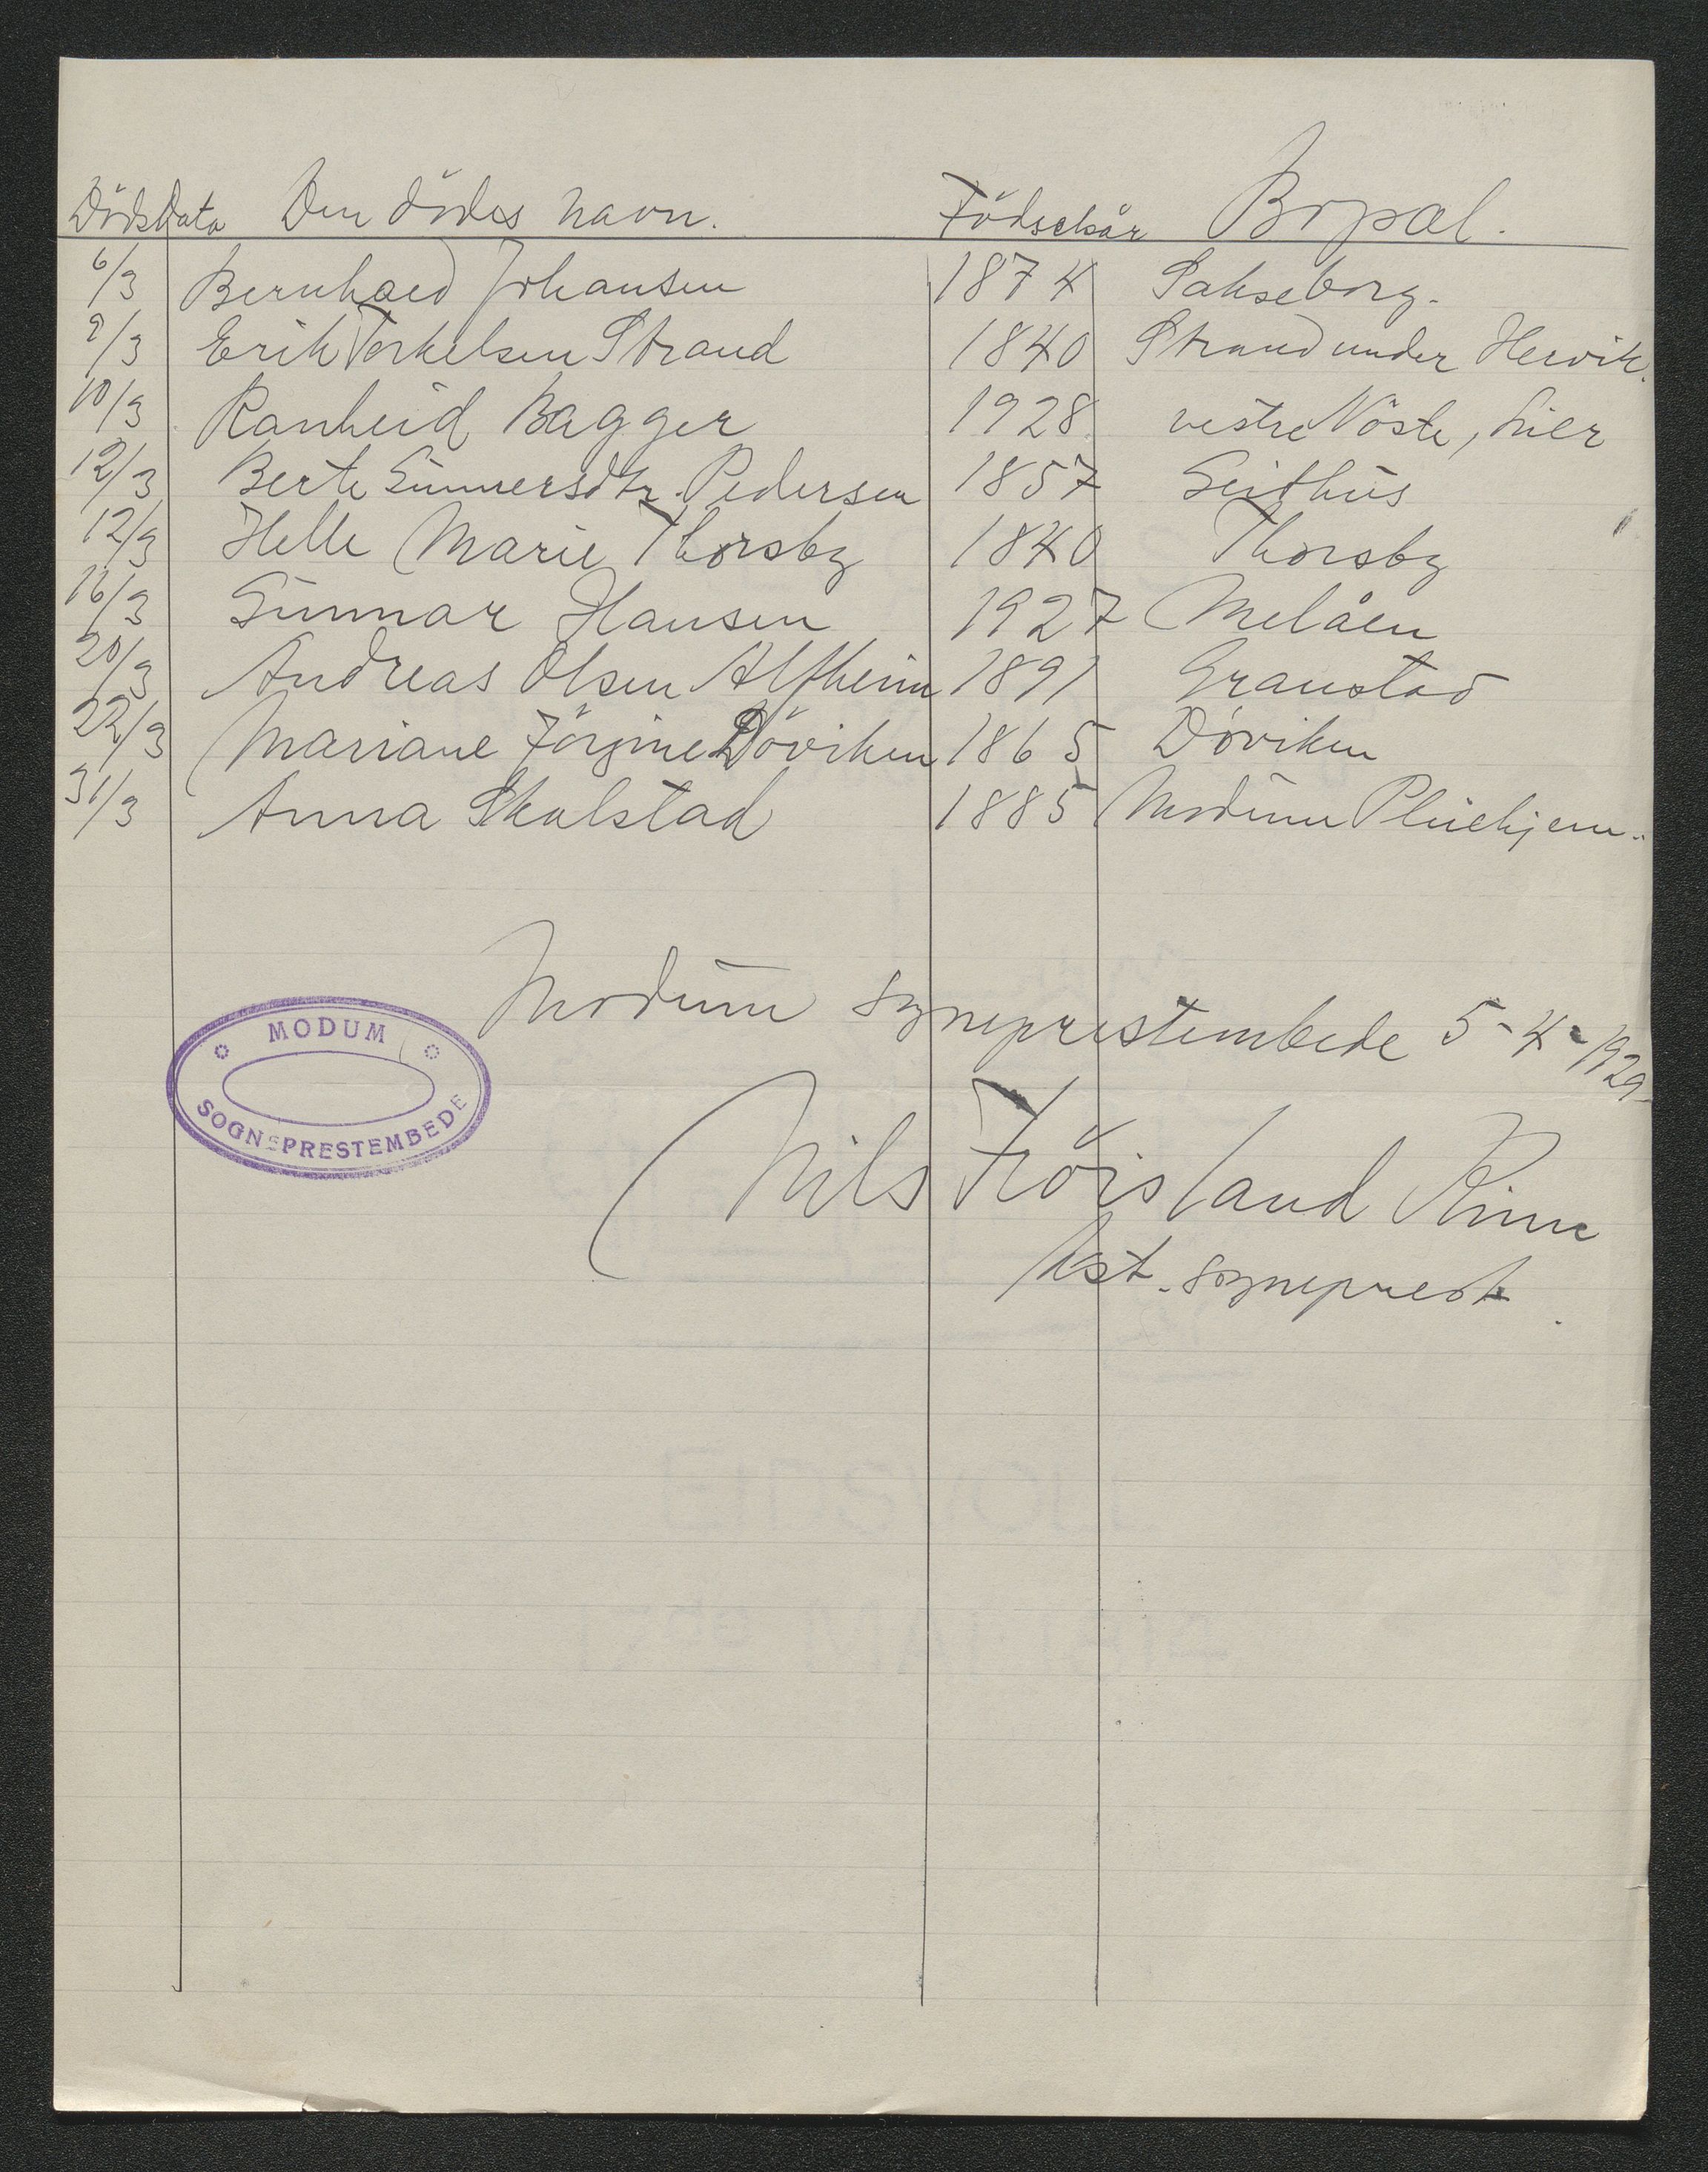 Dödsdata Den dödes navn. Födselsår Bopæl.
6/3 Bernhard Johansen 1874 Sakseborg.
9/3 Erik Torkelsen Strand 1840 Strand under Hervik.
10/3 Ranheid Bagger 1928 vestre Nöste, Lier
12/3 Berte Gunnersdtr. Pedersen 1857 Geithus
12/3 Helle Marie Thorsby 1840 Thorsby
16/3 Gunnar Hansen 1927 Melåen
20/3 Andreas Olsen Alfheim 1891 Granstad
22/3 Mariane Jörgine Döviken 1865 Döviken
31/3 Anna Skalstad 1885 Modum Pleiehjem.
Modum sogneprestembede 5-4-1929
MODUM
SOGNEPRESTEMBEDE
Nils Fröisland
kst. sogneprest.